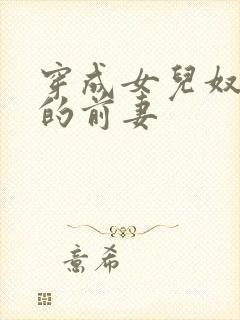 穿成女兒奴
的前妻
意希